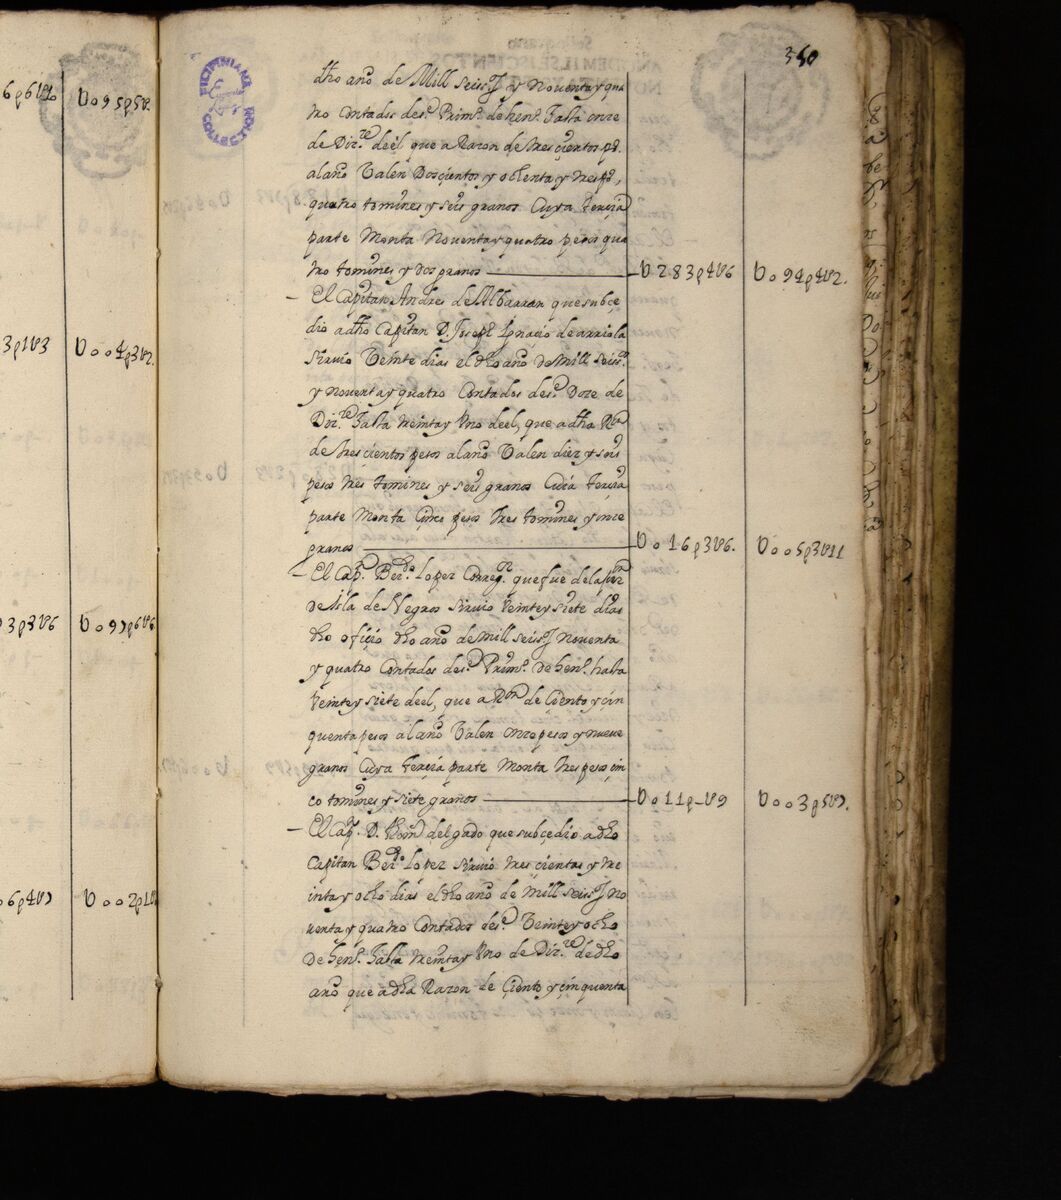 6p6
U095p5
3p1U3
U004p3U2.
93p3U6
U097p6U6
06p4U
U002p1U
360
FILIPINIANA
COLLECTION
dho año de Mill seisS.s y Noventa y qua
tro Contados des.e Prim.o de hen.o hasta onze
de Diz.re de el que a Razon de trescientos p.s
al año Valen Doscientos y ochenta y tres p.s,
quatro tomines y seis granos Cuya terçia
parte Monta Noventa y quatro pesos qua
tro tomines y dos granos
U283p4U6
U094p4U2.
El Capitan Andres de Albarran que subçe
dio a dho Capitan D. Joseph Ignacio de arriola
Sirvio Veinte dias el dho año de Mill seiss.s
y Noventa y quatro Contados des.e Doze de
Diz.re hasta treinta y Uno de el, que a dha R.on
de trescientos pesos al año Valen diez y seis
pesos tres tomines y seis granos Cuia terçia
parte Monta Çinco pesos tres tomines y onze
granos
U016p3U6.
U005p3U11
El Cap.n Ber.do Lopez Correg.or que fue de la Jur.on
de Isla de Negros sirvio Veinte y siete dias
dho ofiçio dho año de mill seiss.s Noventa
y quatro Contados des.e Prim.o de hen.o hasta
Veinte y siete de el, que a R.on de Çiento y çin
quenta pesos al año Valen onze pesos y nueve
granos Cuya terçia parte Monta tres pesos çin
co tomines y siete granos
U011p_U9
U003p5U7.
El Cap.n D. delgado que subçedio a dho
Capitan Ber.do Lopez sirvio trescientas y tre
inta y ocho dias el dho año de mill seiss.s No
venta y quatro Contados des.e Veinte y ocho
de hen.o hasta treinta y Uno de Diz.re de dho
año que a dha Razon de Çiento y çinquenta